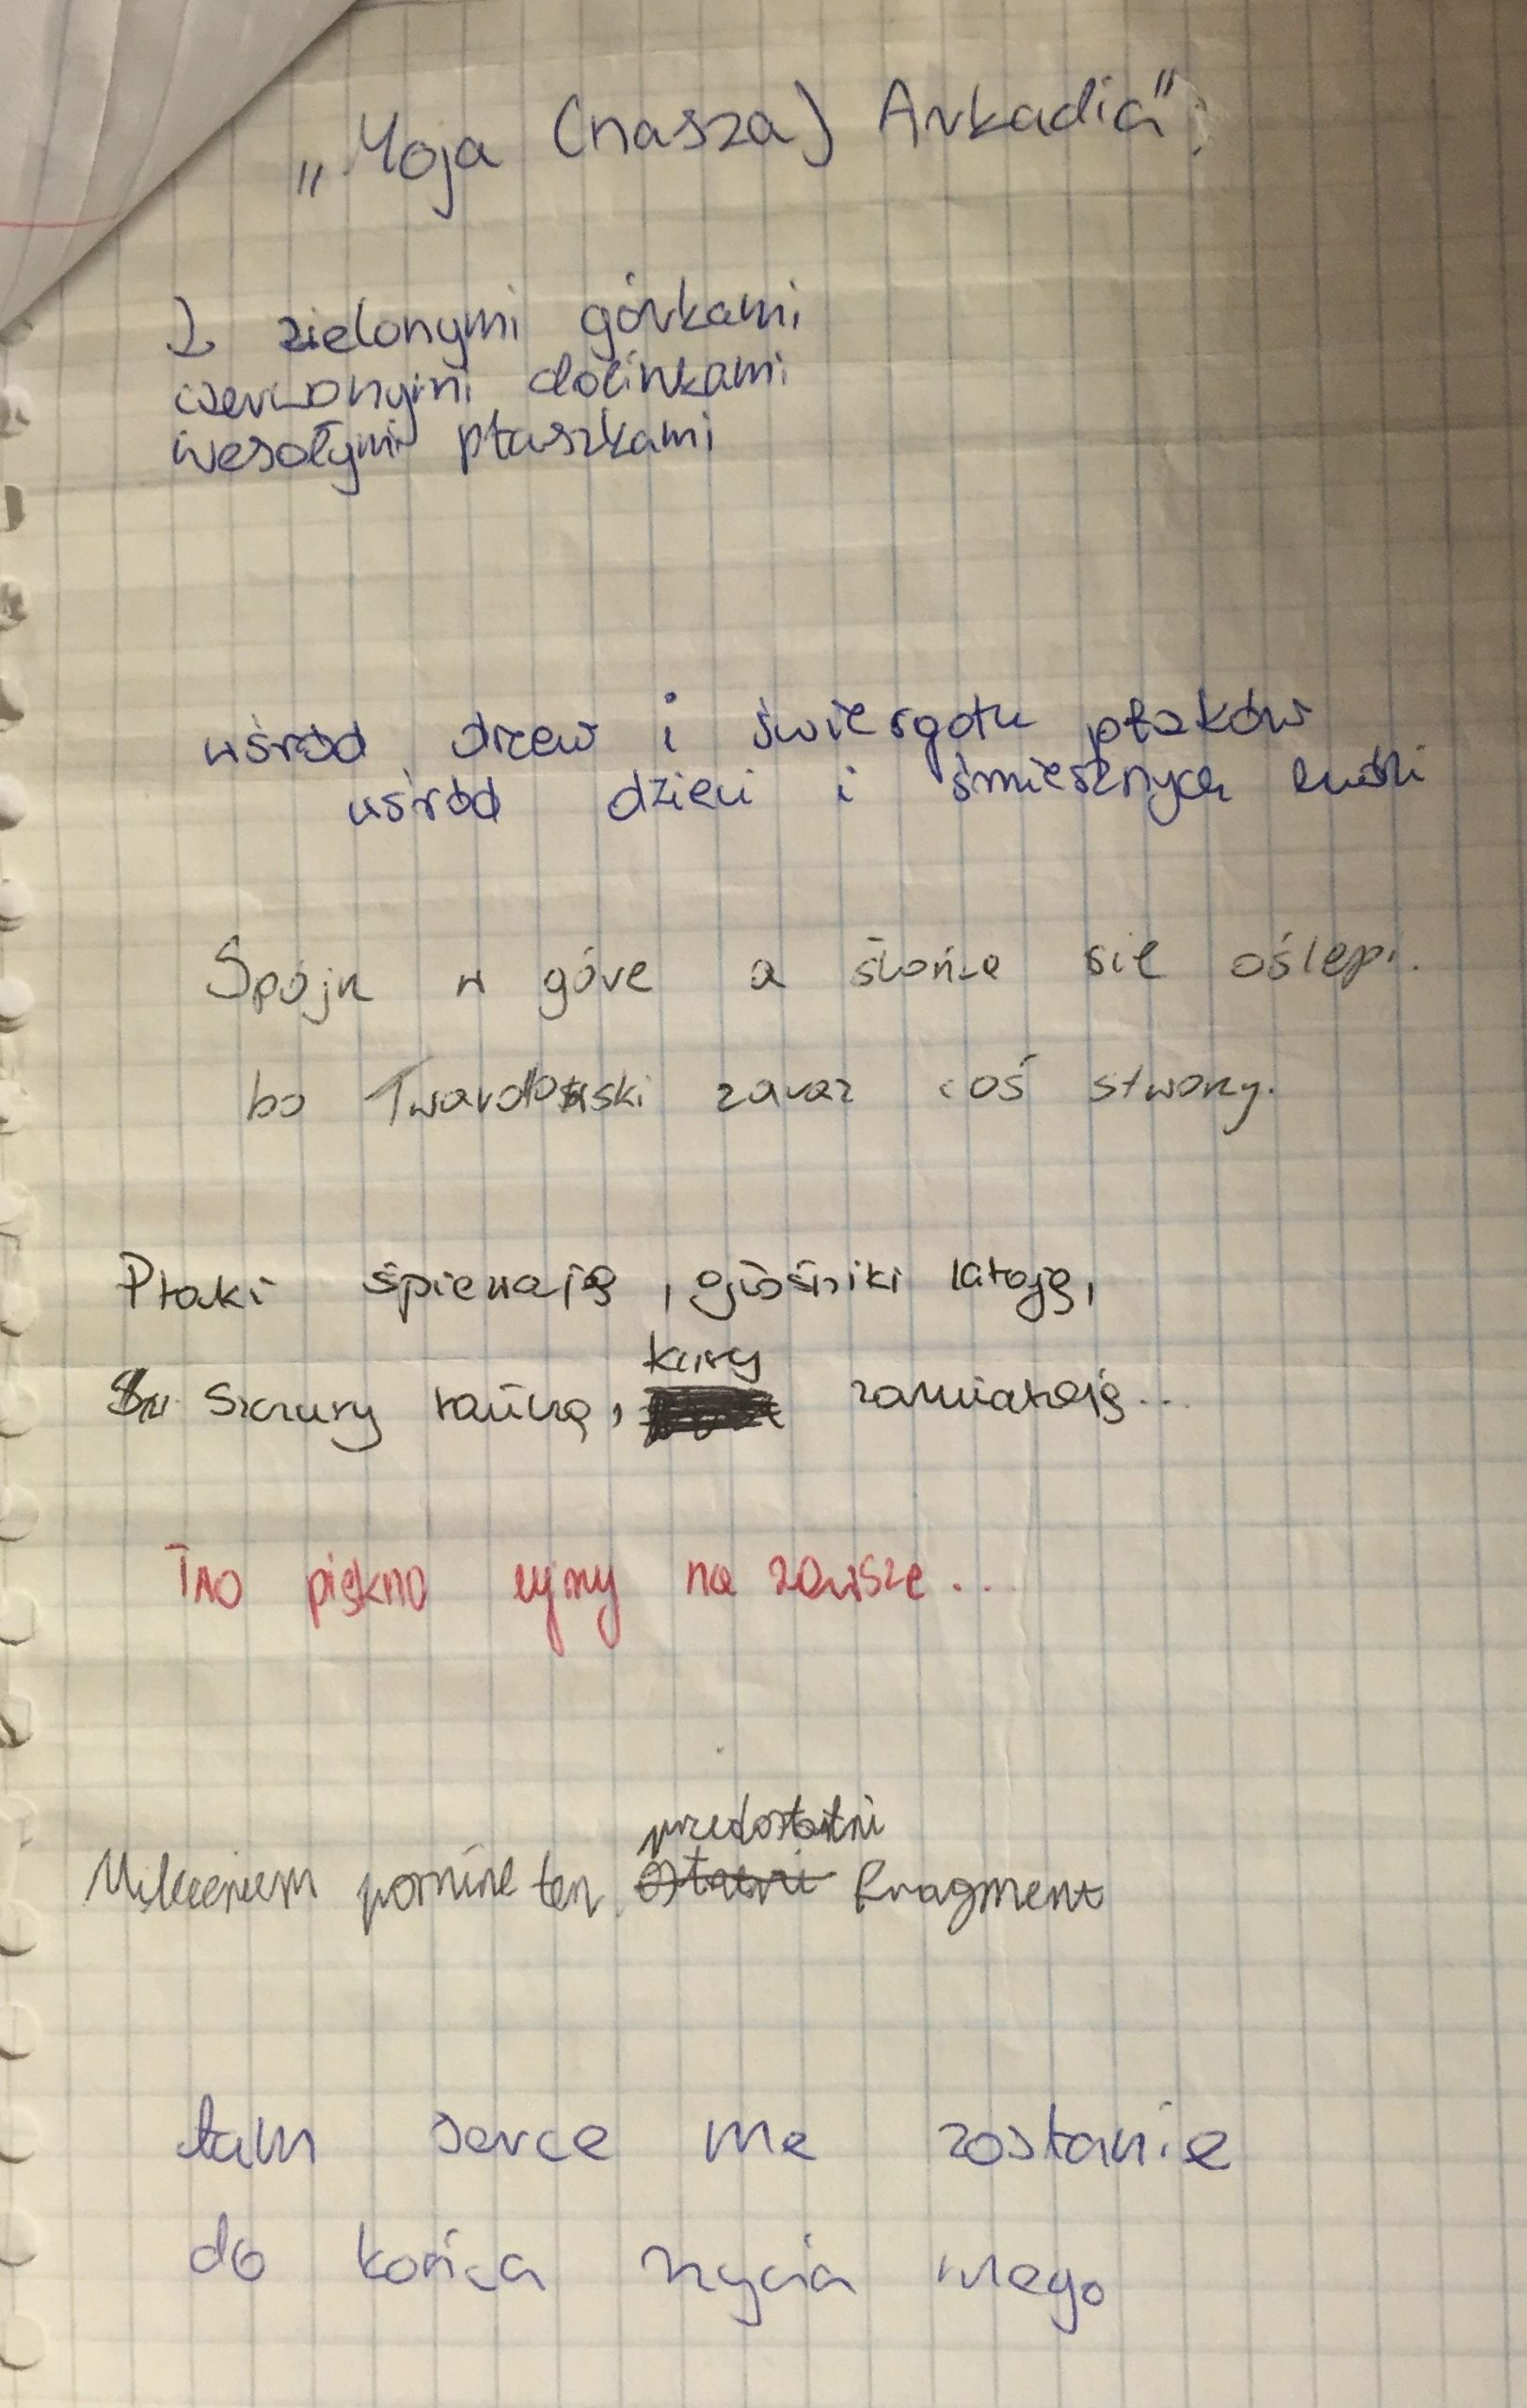 „Moja (nasza) Arkadia"
Z zielonymi górkami
czerwonymi dolinkami
wesołymi ptaszkami
wśród drzew i świergotu ptaków
wśród dzieci i śmiesznych ludzi
Spójż w góre a słońce sie oślepi.
bo Twardowski zaraz coś stworzy.
Ptaki śpiewają, głośniki latają,
Szczury tańczą, kury zamiatają...
piękno na zawsze...
Milczeniem pominę ten przedostatni fragment
tam serce me zostanie
do końca życia mego